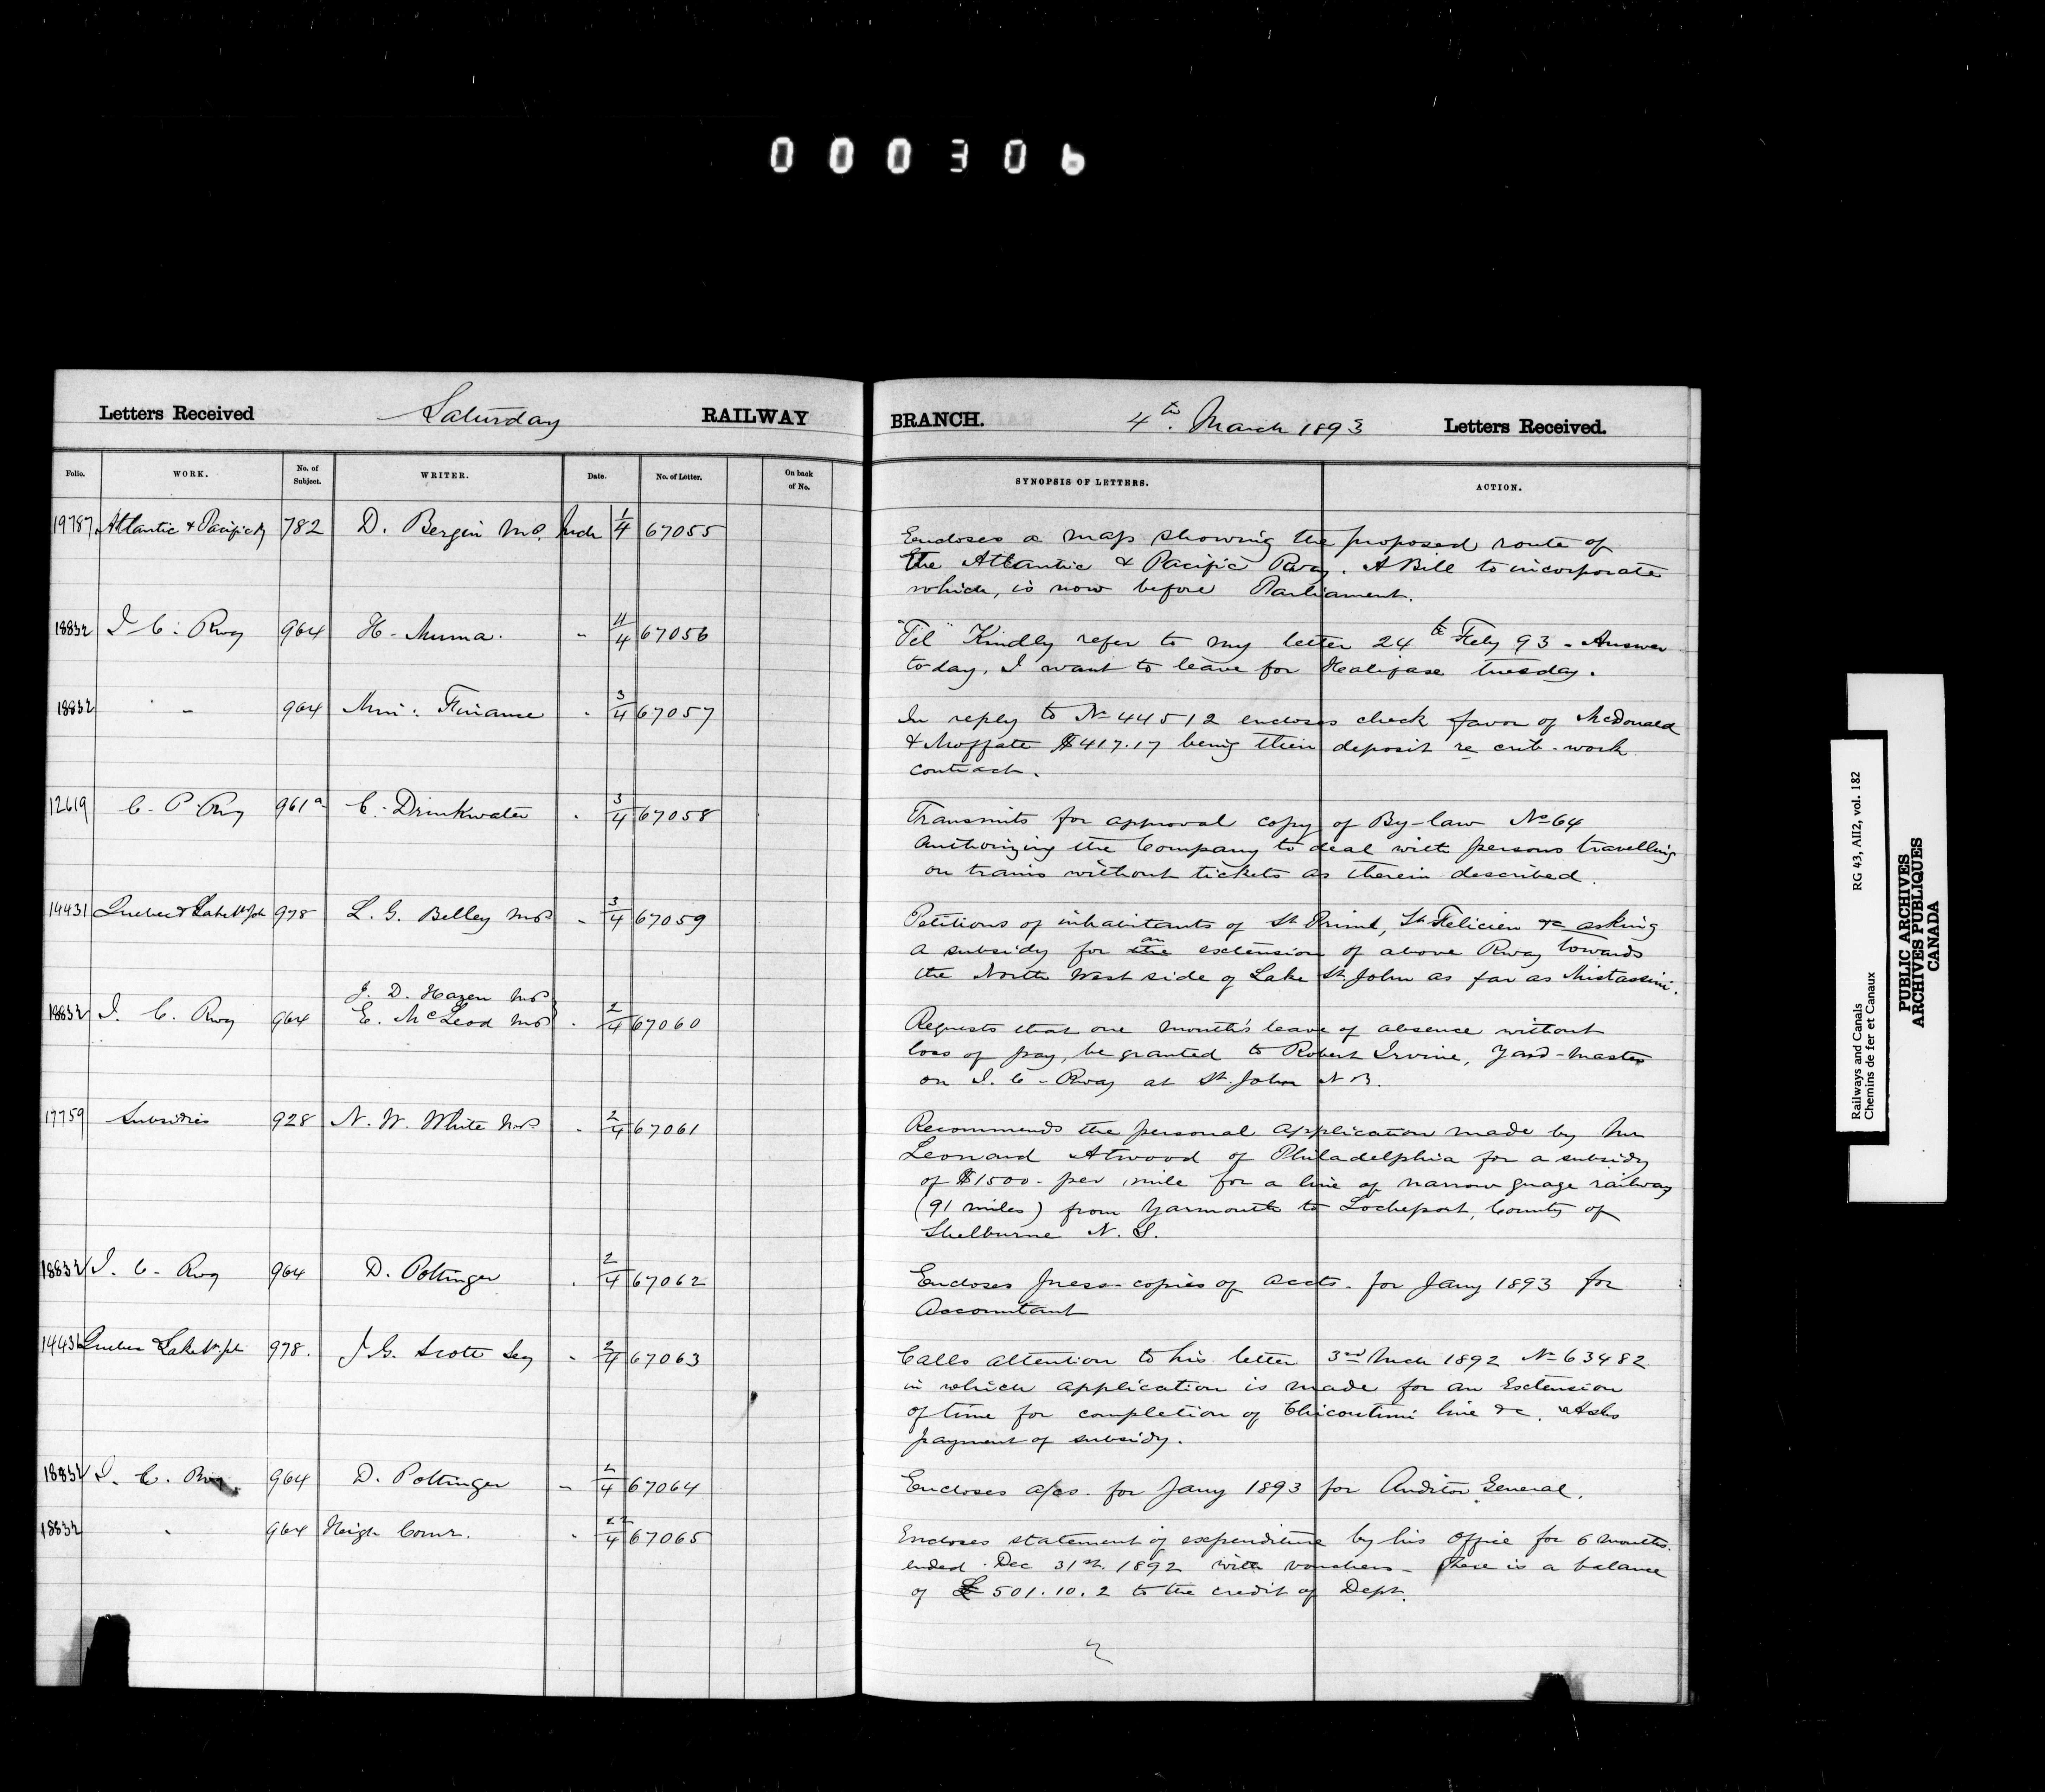 000306
Letters Received Saturday RAILWAY BRANCH. 4th March 1893 Letters Received.
Folio. WORK. No. of Subject. WRITER. Date. No. of Letter. On back of No. SYNOPSIS OF LETTERS. ACTION.
19787 Atlantic & Pacific Ry 782 D. Bergin M.P. Mch 1/4 67055 Encloses a map showing the proposed route of
the Atlantic & Pacific Rway. A Bill to incorporate
which, is now before Parliament.
18832 I. C. Rwy 964 H. Muma. " 4/4 67056 "Tel" Kindly refer to my letter 24th Feby 93 - Answer
to-day, I want to leave for Halifax tuesday.
18832 " 964 Min: Finance " 3/4 67057 In reply to No 44512 encloses check favor of McDonald
& Moffatt $417.17 being their deposit re crib-work
contract.
12619 C. P. Rwy 961a C. Drinkwater " 3/4 67058 Transmits for approval copy of By-law No 64
Authorizing the Company to deal with persons travelling
on trains without tickets as therein described.
14431 Quebec & Lake St Joh 978 L. G. Belley M.P. " 3/4 67059 Petitions of inhabitants of St Prime, St Felicien &c asking
a subsidy for the an extension of above Rway towards
the North West side of Lake St John as far as Mistassini.
J. D. Hazen M.P.
18832 I. C. Rwy 964 E. McLeod M.P. " 2/4 67060 Requests that one month's leave of absence without
loss of pay, be granted to Robert Irvine, Yard-master
on I. C. Rway at St. John N.B.
17759 Subsidies 928 N. W. White M.P. " 2/4 67061 Recommends the personal application made by Mr
Leonard Atwood of Philadelphia for a subsidy
of $1500 - per mile for a line of narrow guage railway
(91 miles) from Yarmouth to Lockeport, County of
Shelburne N. S.
18832 I. C. Rwy 964 D. Pottinger " 2/4 67062 Encloses press-copies of accts. for Jany 1893 for
Accountant
14431 Quebec & Lake St Joh 978. J. G. Scott Secy " 2/4 67063 Calls attention to his letter 3rd Mch 1892 No 63482
in which application is made for an Extension
of time for completion of Chicoutimi line &c. Asks
payment of subsidy.
18832 I. C. Rwy 964 D. Pottinger " 2/4 67064 Encloses a/cs. for Jany 1893 for Auditor General.
18832 " 964 High Comr. " 22/4 67065 Encloses statement of expenditure by his Office for 6 months
ended Dec 31st. 1892 with vouchers - There is a balance
of £501.10.2 to the credit of Dept.
Railways and Canals RG 43, AII2, vol. 182
Chemins de fer et Canaux
PUBLIC ARCHIVES
ARCHIVES PUBLIQUES
CANADA